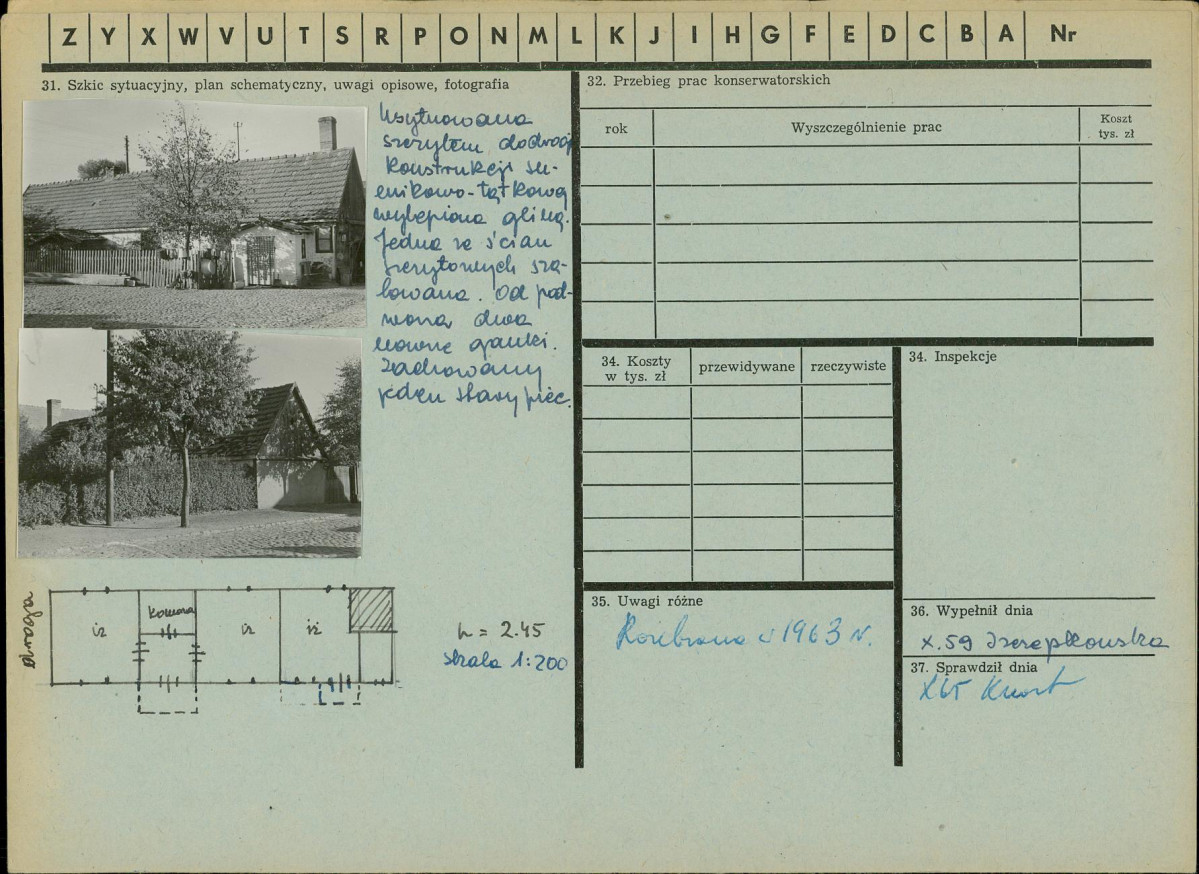 Z Y X W V U T S R P O N M L K J I H G F E D C B A Nr
31. Szkic sytuacyjny, plan schematyczny, uwagi opisowe, fotografia
Usytuowana
szczytem do drogi
konstrukcji su-
mikowo-łątkowej
wylepiona gliną.
Jedna ze ścian
szczytowych sza-
lowana. Od pod-
wórza dwa
nowe ganki.
Zachowany
jeden stary piec.
droga
iz
komora
iz
iz
h = 2.45
skala 1:200
32. Przebieg prac konserwatorskich
rok
Wyszczególnienie prac
Koszt
tys. zł
34. Koszty
w tys. zł
przewidywane
rzeczywiste
34. Inspekcje
35. Uwagi różne
Rozebrana w 1963 r.
36. Wypełnił dnia
X.59
37. Sprawdził dnia